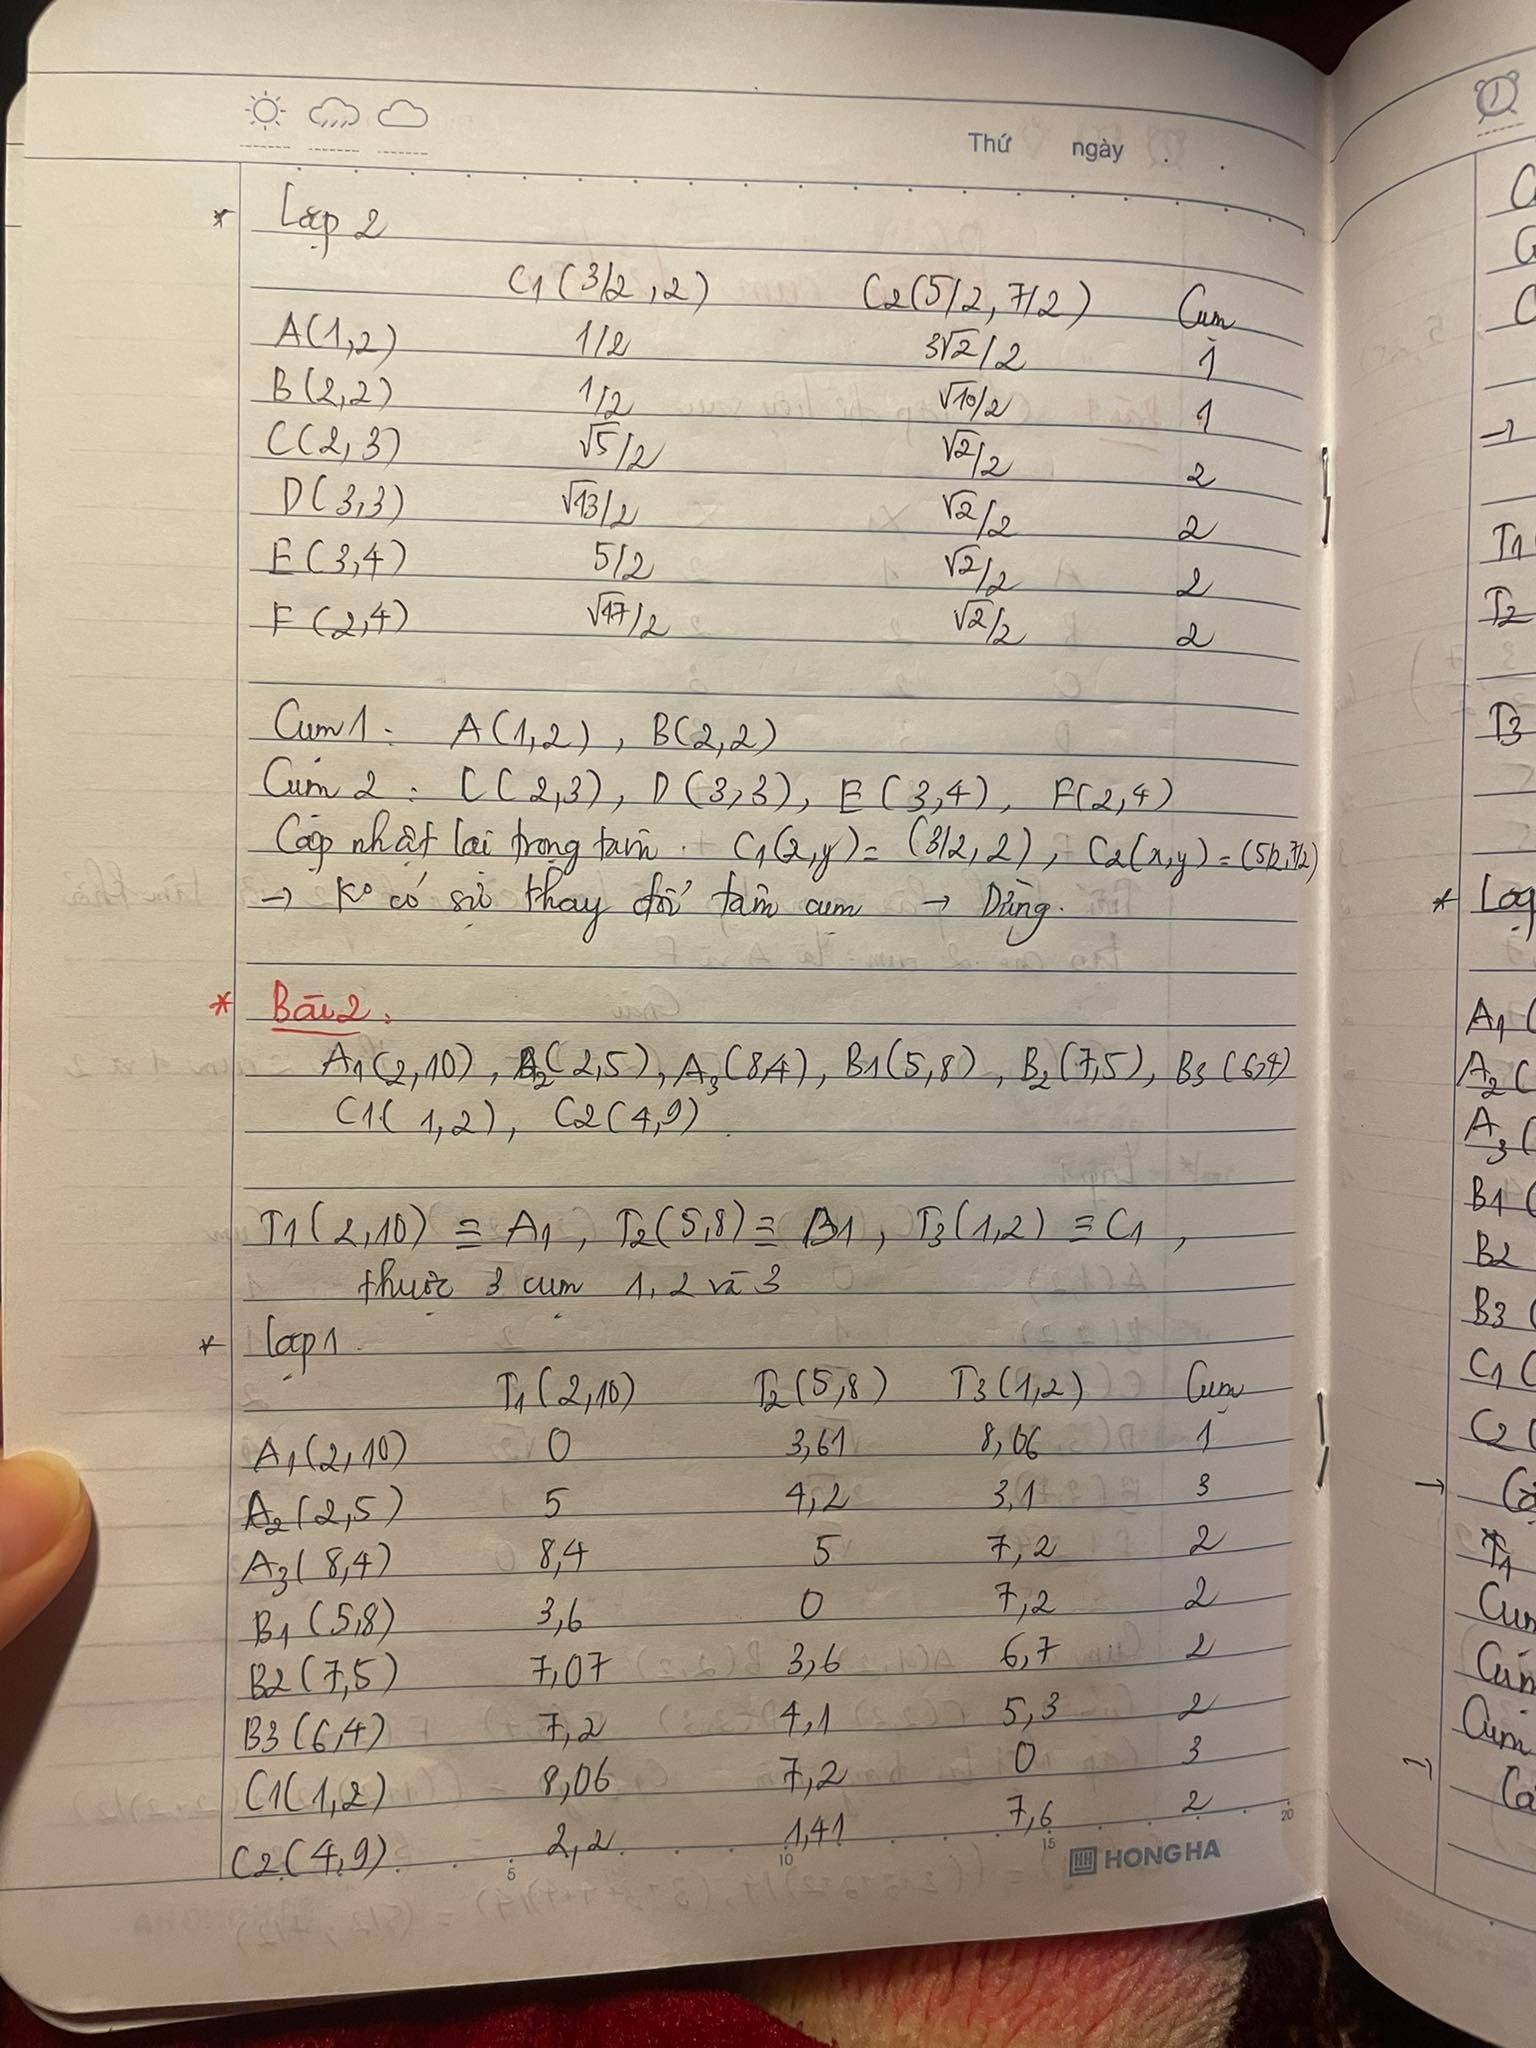 Thứ ngày
* Lặp 2
C1(3/2,2) C2(5/2,7/2) Cụm
A(1,2) 1/2 3√2/2 1
B(2,2) 1/2 √10/2 1
C(2,3) √5/2 √2/2 2
D(3,3) √13/2 √2/2 2
E(3,4) 5/2 √2/2 2
F(2,4) √17/2 √2/2 2
Cụm 1: A(1,2), B(2,2)
Cụm 2: C(2,3), D(3,3), E(3,4), F(2,4)
Cập nhật lại trọng tâm. C1(2,y)=(3/2,2), C2(x,y)=(5/2,7/2)
→ K° có sự thay đổi tâm cụm → Dừng.
* Bài 2:
A1(2,10), A2(2,5), A3(8,4), B1(5,8), B2(7,5), B3(6,4)
C1(1,2), C2(4,9).
T1(2,10) ≡ A1, T2(5,8) ≡ B1, T3(1,2) ≡ C1,
thuộc 3 cụm 1, 2 và 3
* Lặp 1.
T1(2,10) T2(5,8) T3(1,2) Cụm
A1(2,10) 0 3,61 8,06 1
A2(2,5) 5 4,2 3,1 3
A3(8,4) 8,4 5 7,2 2
B1(5,8) 3,6 0 7,2 2
B2(7,5) 7,07 3,6 6,7 2
B3(6,4) 7,2 4,1 5,3 2
C1(1,2) 8,06 7,2 0 3
C2(4,9) 2,2 1,41 7,6 2
5 10 15 20
HONG HA
T1
T2
T3
* Lặp
A1(
A2(
A3(
B1(
B2
B3(
C1(
C2(
T1
Cụm
Cụm
Cụm